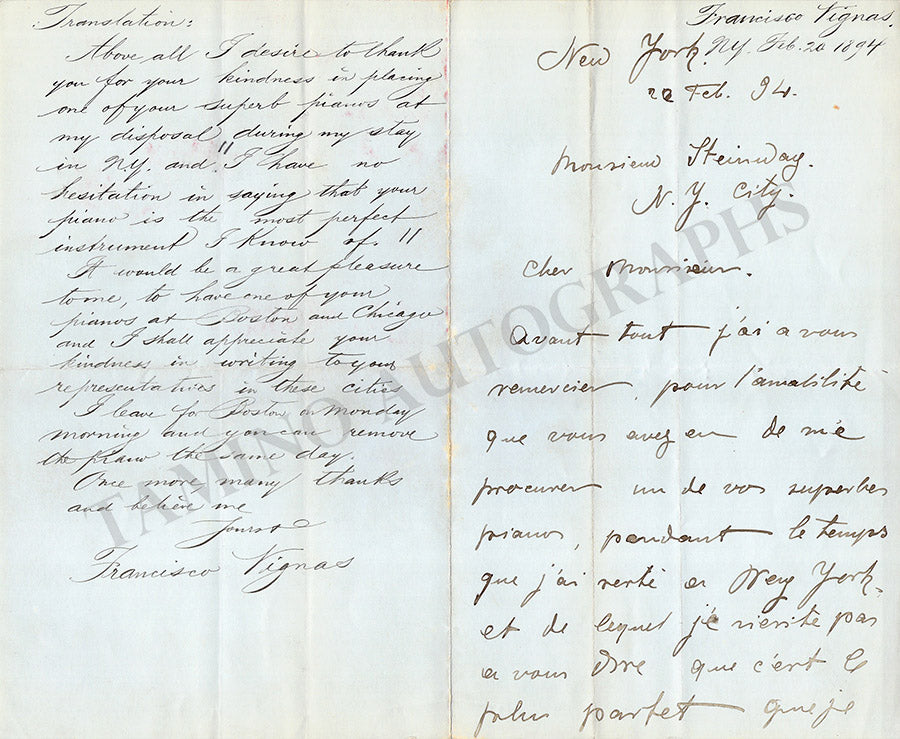 Translation:
Above all I desire to thank
you for your kindness in placing
one of your superb pianos at
my disposal, during my stay
in N.Y. and "I have no
hesitation in saying that your
piano is the most perfect
instrument I know of."
It would be a great pleasure
to me, to have one of your
pianos at Boston and Chicago
and I shall appreciate your
kindness in writing to your
representatives in these cities
I leave for Boston on Monday
morning and you can remove
the piano the same day.
Once more many thanks
and believe me
Yours &c
Francisco Vignas
Francisco Vignas.
N.Y. Feb. 20 1894
New York.
Feb. 94.
Monsieur Steinway.
N. Y. City.
Cher Monsieur.
Avant tout j'ai a vous
remercier, pour l'amabilité
que vous avez eu de me
procurer un de vos superbes
pianos, pendant le temps
que j'ai resté a New York,
et de lequel je n'esite pas
a vous dire que c'est le
plus parfet que je
TAMINO AUTOGRAPHS